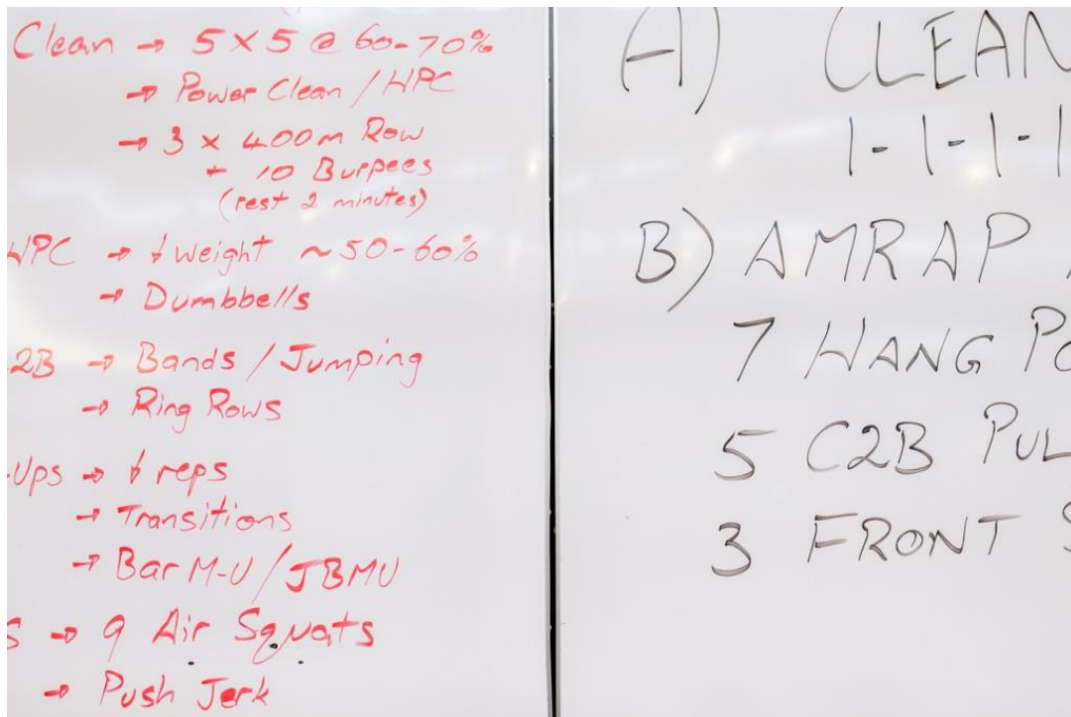 Clean → 5 x 5 @ 60-70%
→ Power Clean / HPC
→ 3 x 400m Row
+ 10 Burpees
(rest 2 minutes)
HPC → ↓ weight ~50-60%
→ Dumbbells
2B → Bands / Jumping
→ Ring Rows
-Ups → ↓ reps
→ Transitions
→ Bar M-U / JBMU
S → 9 Air Squats
→ Push Jerk
A) CLEAN
1-1-1-1
B) AMRAP
7 HANG PO
5 C2B PUL
3 FRONT S